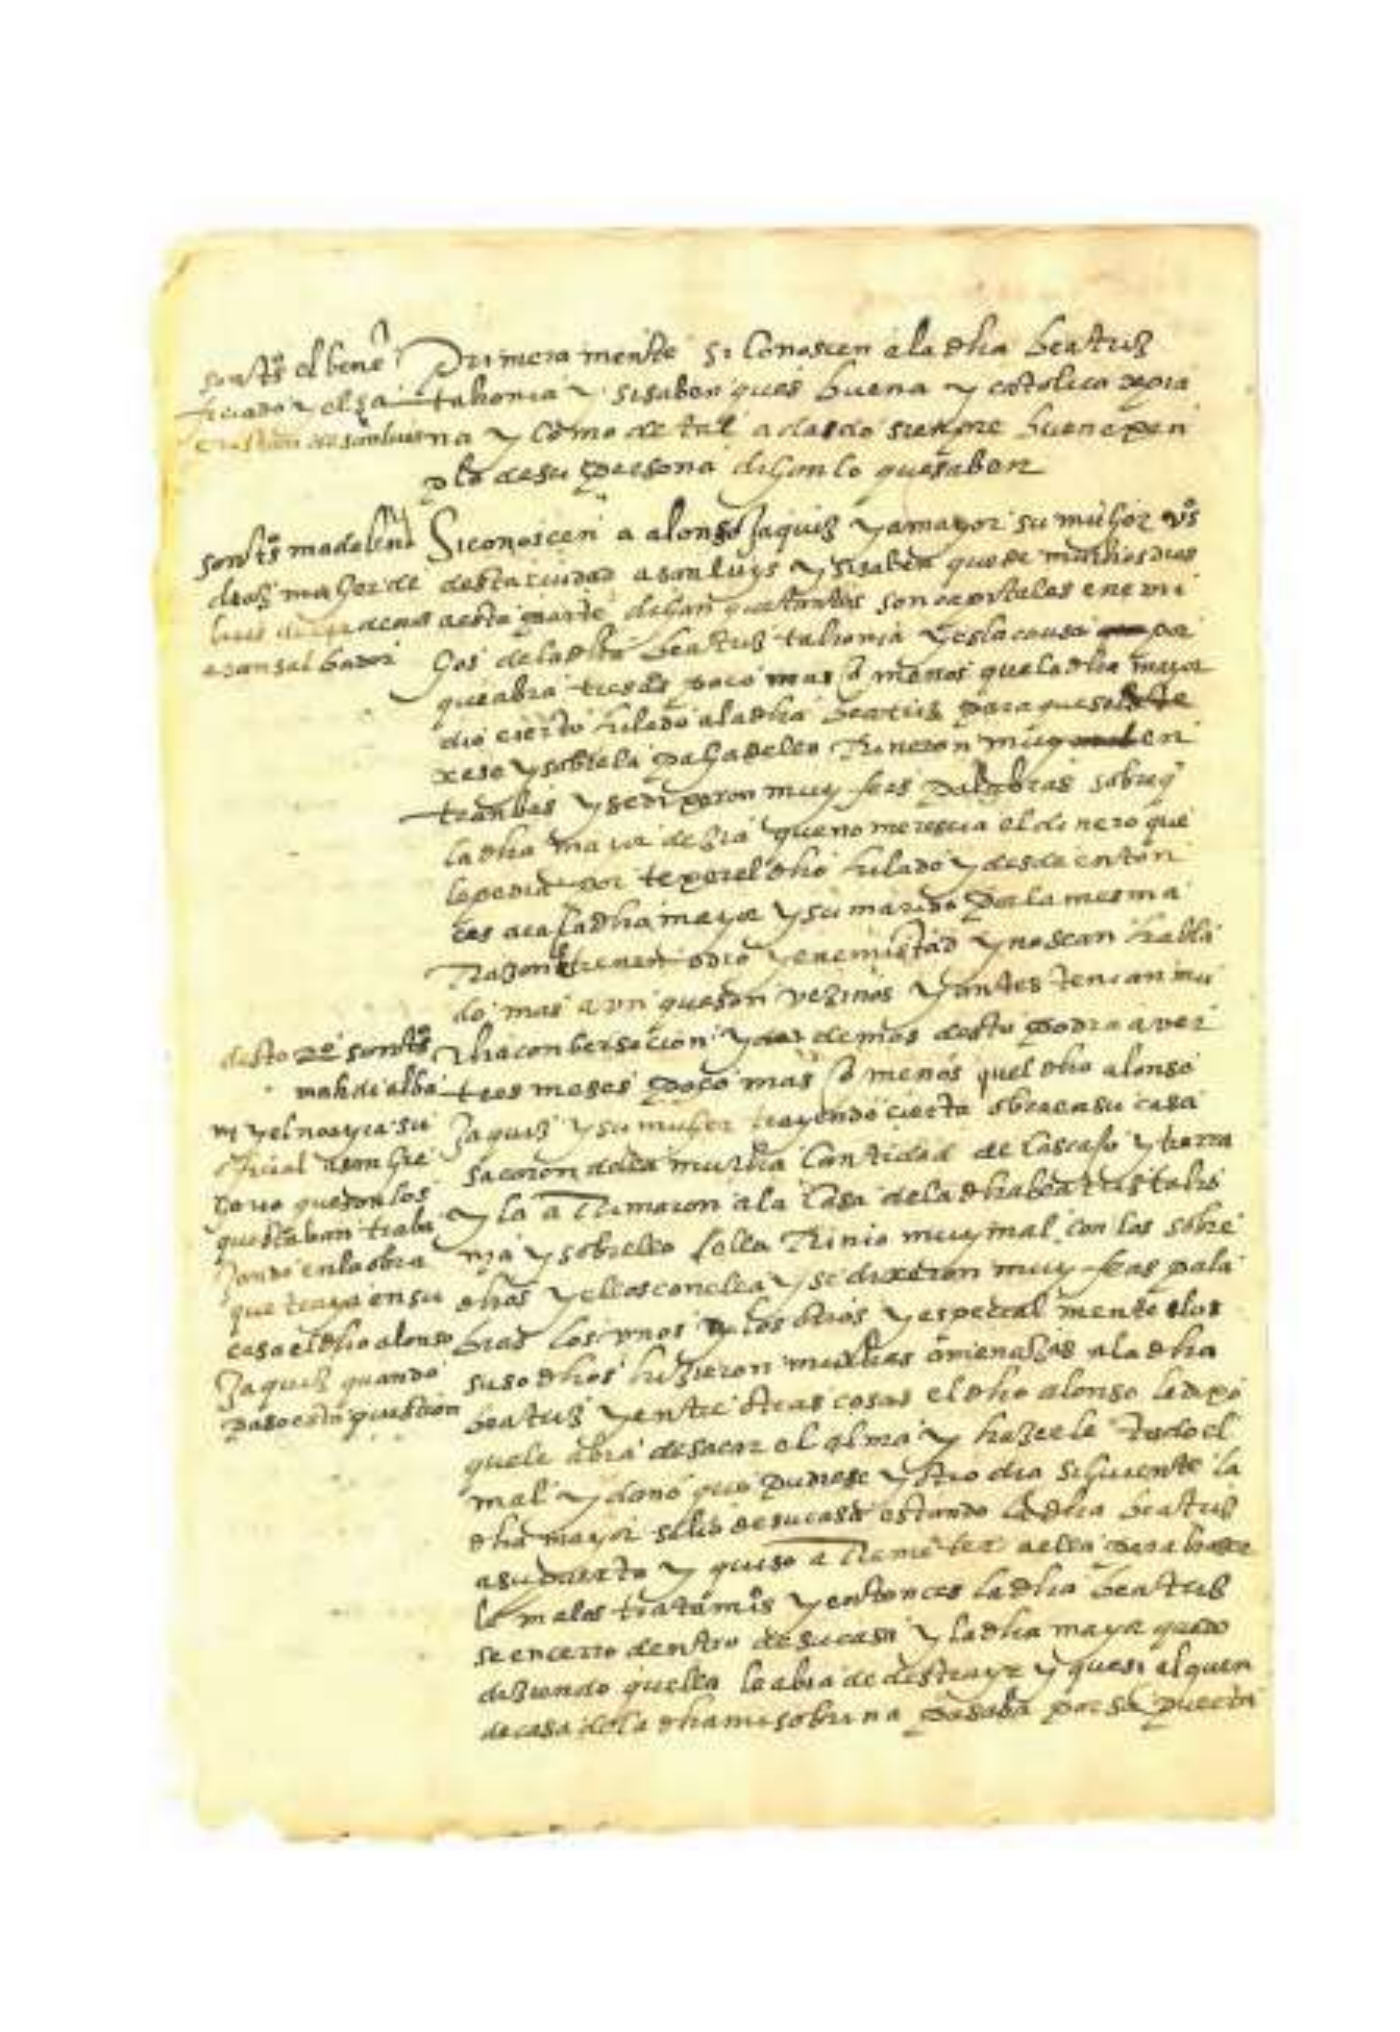 son tºs el bene
ficiado y el sa
cristan de san luis
Primera mente si Conoscen a la dha beatriz
tahonia y si saben ques buena y catolica xpia
na y Como de tal a dado siempre buen exen
plo de su persona digan lo que saben
son tºs madalena
muger de
eran salbador
Si conoscen a alonso Jaquiz y a mayor su muger vºs
desta ciudad a san luys y si saben que de muchos dias
a esta parte digan que tantos son mortales enemi
gos de la dha beatriz tahonia y es la causa por
que abra tres aºs poco mas o menos que la dha mayor
dio cierto hilado a la dha beatriz para que se lo te
xese y sobre la paga dello Riñeron muy en
tranbas y se dixeron muy feas palabras sobre q
la dha mayor dezia que no merescia el dinero que
le pedia por texer el dho hilado y desde enton
ces aca la dha mayor y su marido por la mesma
Razon tienen odio y enemistad y no se an habla
do mas a vn que son vezinos y antes tenian mu
cha conbersacion y demas desto podra aver
tres meses poco mas o menos quel dho alonso
Jaquiz y su muger trayendo cierta obra en su casa
sacaron della mucha Cantidad de Cascajo y tierra
y la a Rimaron a la Casa de la dha beatriz taho
nia y sobrello ella Riñio muy mal con los sobre
dhos y ellos con ella y se dixeron muy feas pala
bras los vnos y los otros y especial mente los
suso dhos hizieron muchas amenazas a la dha
beatriz y entre otras cosas el dho alonso le dixo
que le abia de sacar el alma y hazerle todo el
mal y daño que pudiese y otro dia siguiente la
dha mayor salio de su casa estando la dha beatriz
a su puerta y quiso a Remeter a ella para hazer
le malos tratamiºs y entonces la dha beatriz
se encerro dentro de su casa y la dha mayor quedo
diziendo quella le abia de destruyr y que si alguien
de casa de la dha mi sobrina pasaba por su puerta
desto son tºs
y el su
oficial a san gre
gorio que son los
questaban traba
jando en la obra
que traya en su
casa el dho alonso
Jaquiz quando
paso esta question